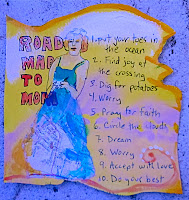 ROAD
MAP
TO
MOM
1. put your toes in
the ocean
2. Find joy at
the crossing
3. Dig for potatoes
4. Worry
5. Pray for Faith
6. Circle the clouds
7. Dream
8. Worry
9. Accept with love
10. Do your best